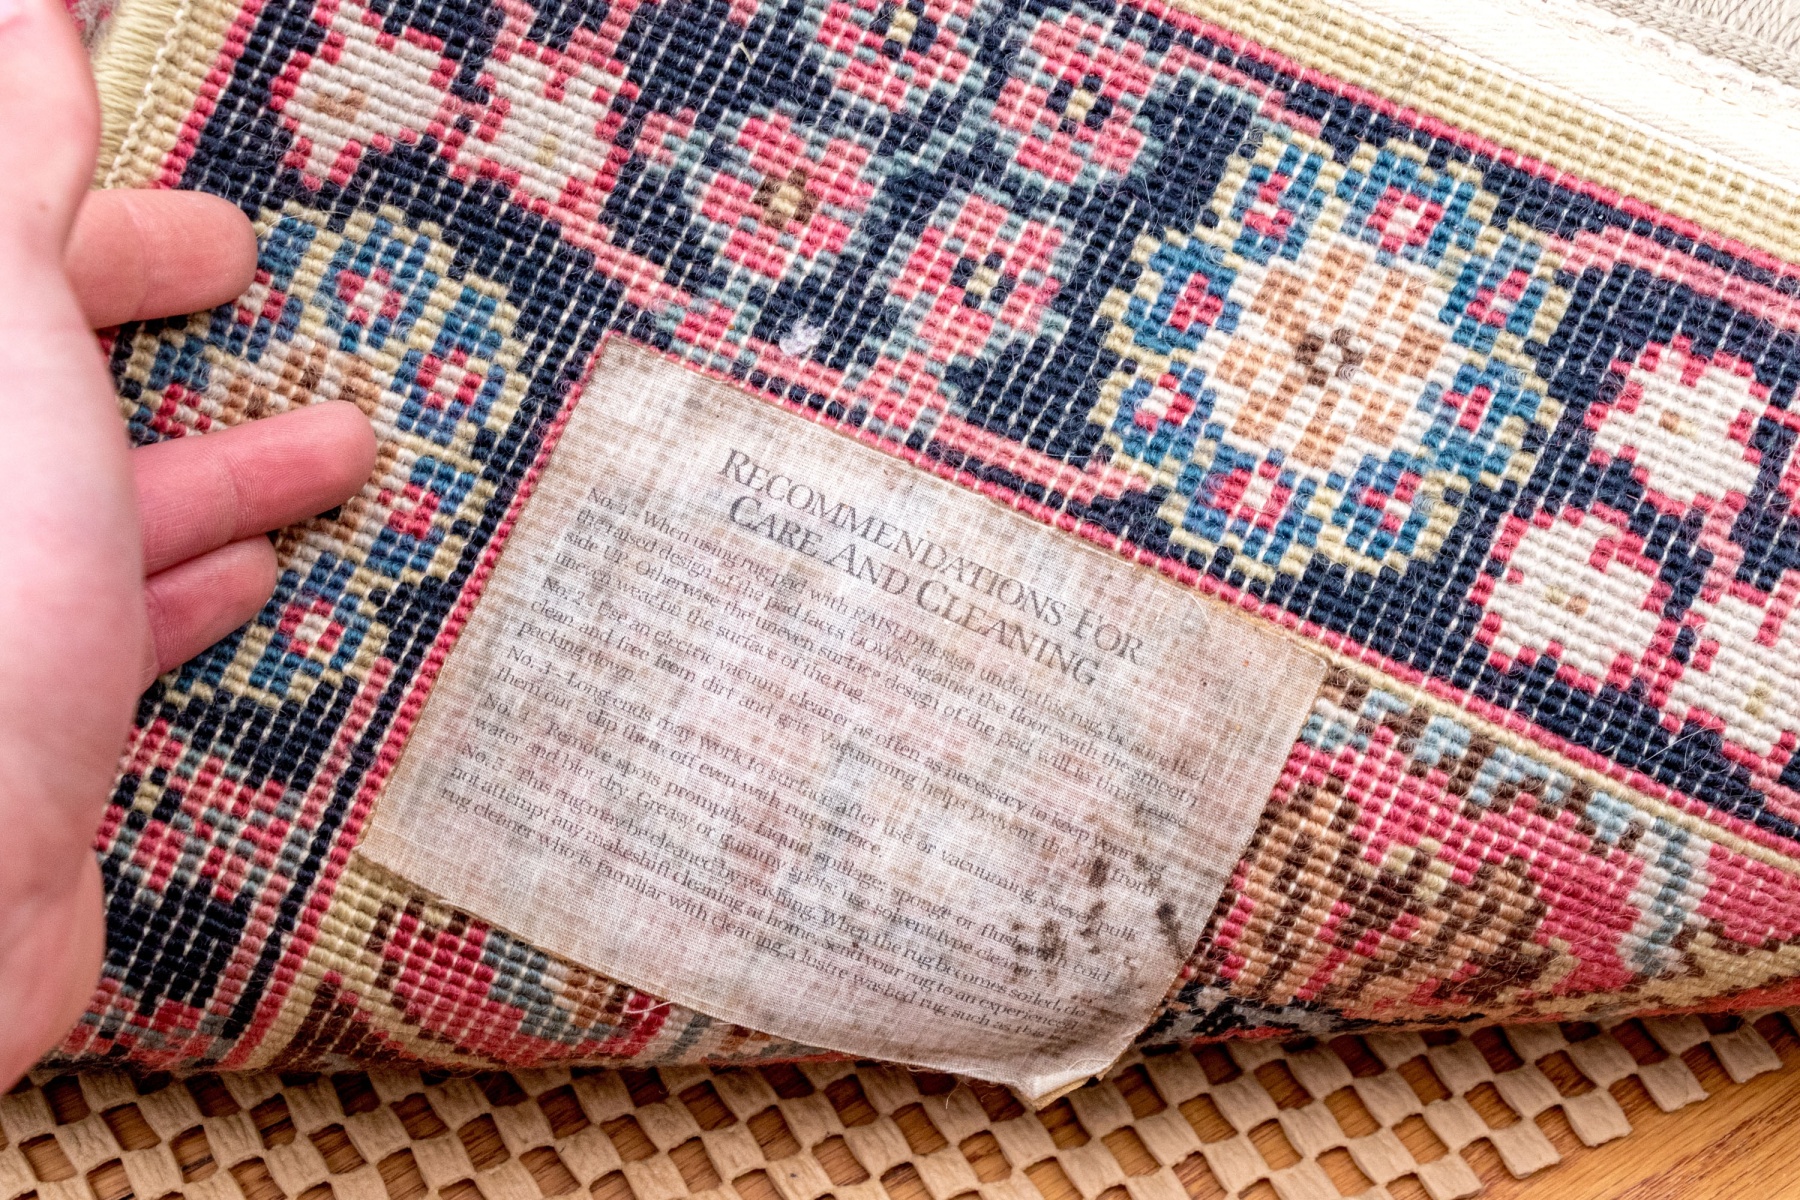 RECOMMENDATIONS FOR
CARE AND CLEANING
No. 1 - When using rug pad with RAISED design under this rug, be sure that
the raised design of the pad faces DOWN against the floor with the smooth
side UP. Otherwise the uneven surface design of the pad will in time cause
uneven wear on the surface of the rug.
No. 2 - Use an electric vacuum cleaner as often as necessary to keep your rug
clean and free from dirt and grit. Vacuuming helps prevent the pile from
packing down.
No. 3 - Long ends may work to surface after use or vacuuming. Never pull
them out - clip them off even with rug surface.
No. 4 - Remove spots promptly. Liquid spillage: sponge or flush with cold
water and blot dry. Greasy or gummy spots: use solvent-type cleaner.
No. 5 - This rug may be cleaned by washing. When the rug becomes soiled, do
not attempt any makeshift cleaning at home, send your rug to an experienced
rug cleaner who is familiar with cleaning a lustre washed rug such as this.